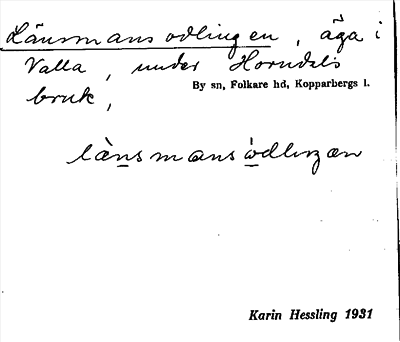 Länsmansodlingen, äga i
Valla, under Horndals
By sn, Folkare hd, Kopparbergs l.
bruk,
lànsmansòdlıŋan
Karin Hessling 1931